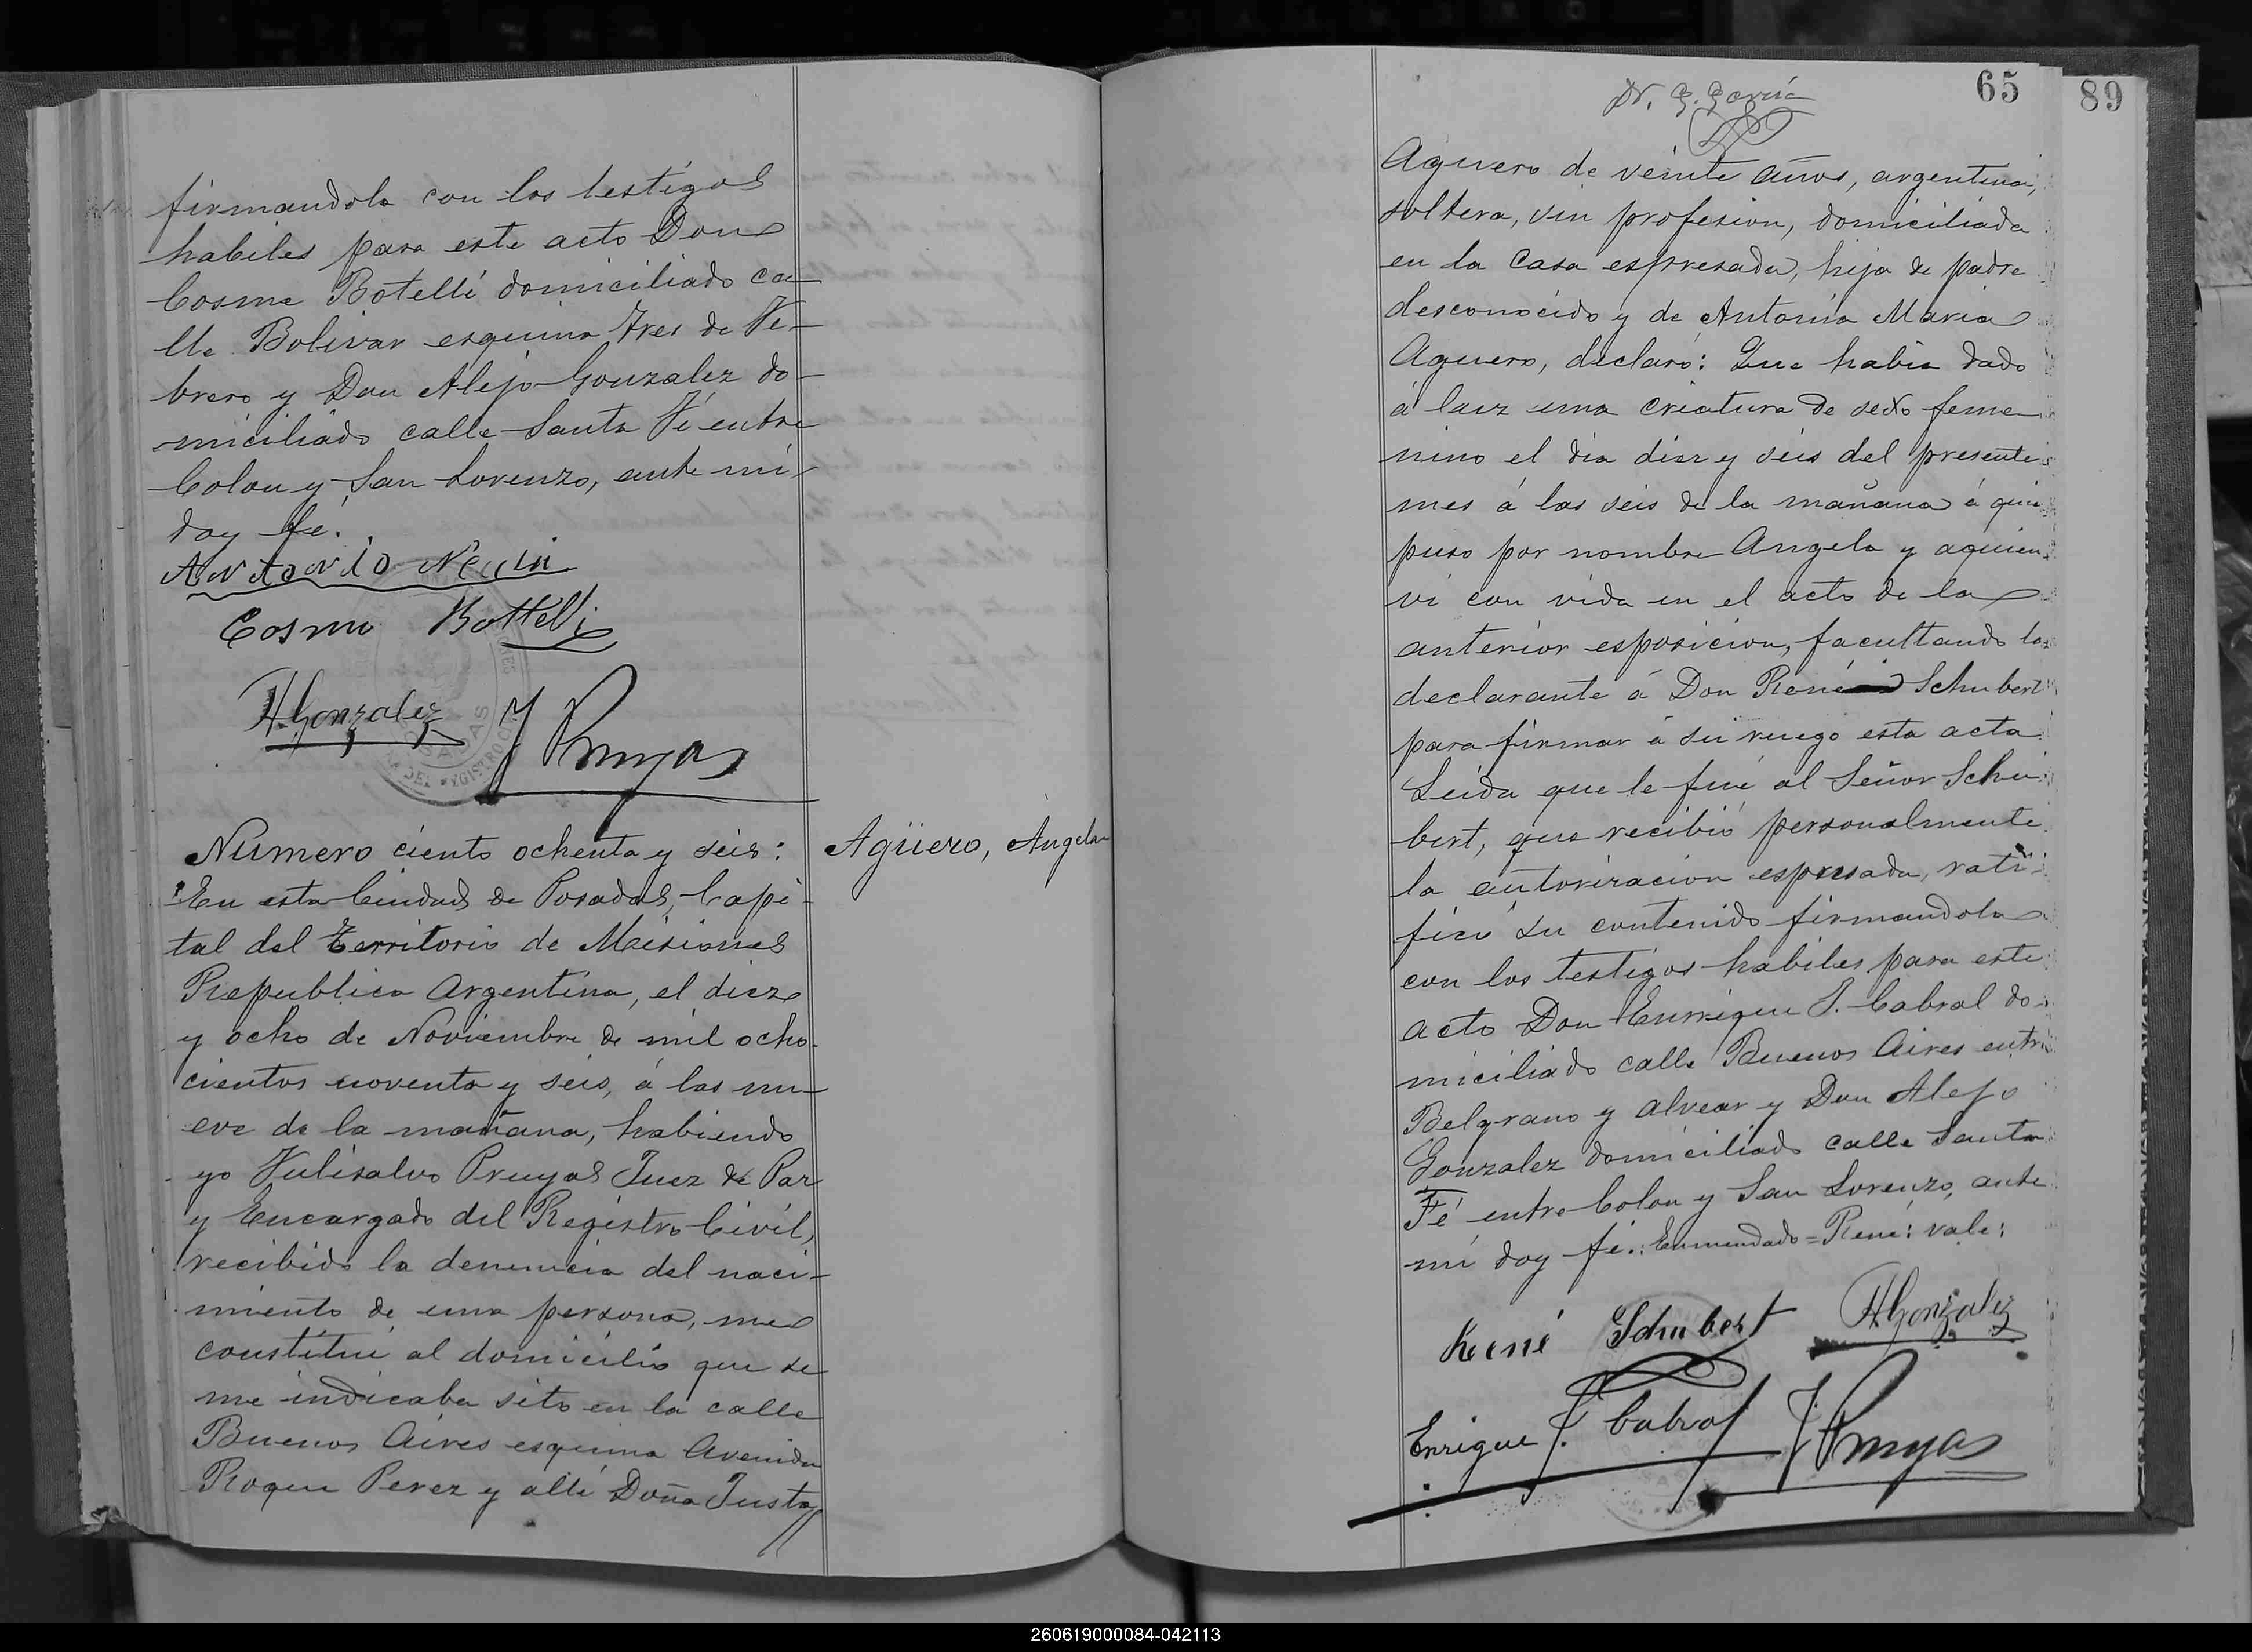 firmandola con los testigos
habiles para este acto Don
Cosme Botelli domiciliado ca-
lle Bolivar esquina tres de Fe-
brero y Don Alejo Gonzalez do-
miciliado calle Santa Fé entre
Colon y San Lorenzo, ante mi
doy fé.
Antonio
Cosme Bottelli
A Gonzalez J Pruyas
Numero ciento ochenta y seis:
En esta Ciudad de Posadas, Capi-
tal del Territorio de Misiones
Republica Argentina, el diez
y ocho de Noviembre de mil ocho-
cientos noventa y seis, á las nu-
eve de la mañana, habiendo
yo Julisalvo Pruyas Juez de Paz
y Encargado del Registro Civil,
recibido la denuncia del naci-
miento de una persona, me
constitui al domicilio que se
me indicaba sito en la calle
Buenos Aires esquina Avenida
Roque Perez y alli Doña Justa
Agüero, Angela
65
89
Dr. G. García
Aguero de veinte años, argentina,
soltera, sin profesion, domiciliada
en la casa espresada, hija de padre
desconocido y de Antonia Maria
Aguero, declaró: Que habia dado
á luz una criatura de sexo feme
nino el dia diez y seis del presente
mes á las seis de la mañana á quien
puso por nombre Angela y aquien
vi con vida en el acto de la
anterior esposicion, facultando la
declarante á Don René Schubert
para firmar á su ruego esta acta
Leida que le fué al Señor Schu
bert, que recibió personalmente
la autorizacion espresada, rati
ficó su contenido firmandola
con los testigos habiles para este
acto Don Enrrique J. Cabral do-
miciliado calle Buenos Aires entre
Belgrano y Alvear y Don Alejo
Gonzalez domiciliado calle Santa
Fé entre Colon y San Lorenzo, ante
mi doy fé.: Enmendado = René: vale:
René Schubert A Gonzalez
Enrique J. Cabral J Pruyas
260619000084-042113